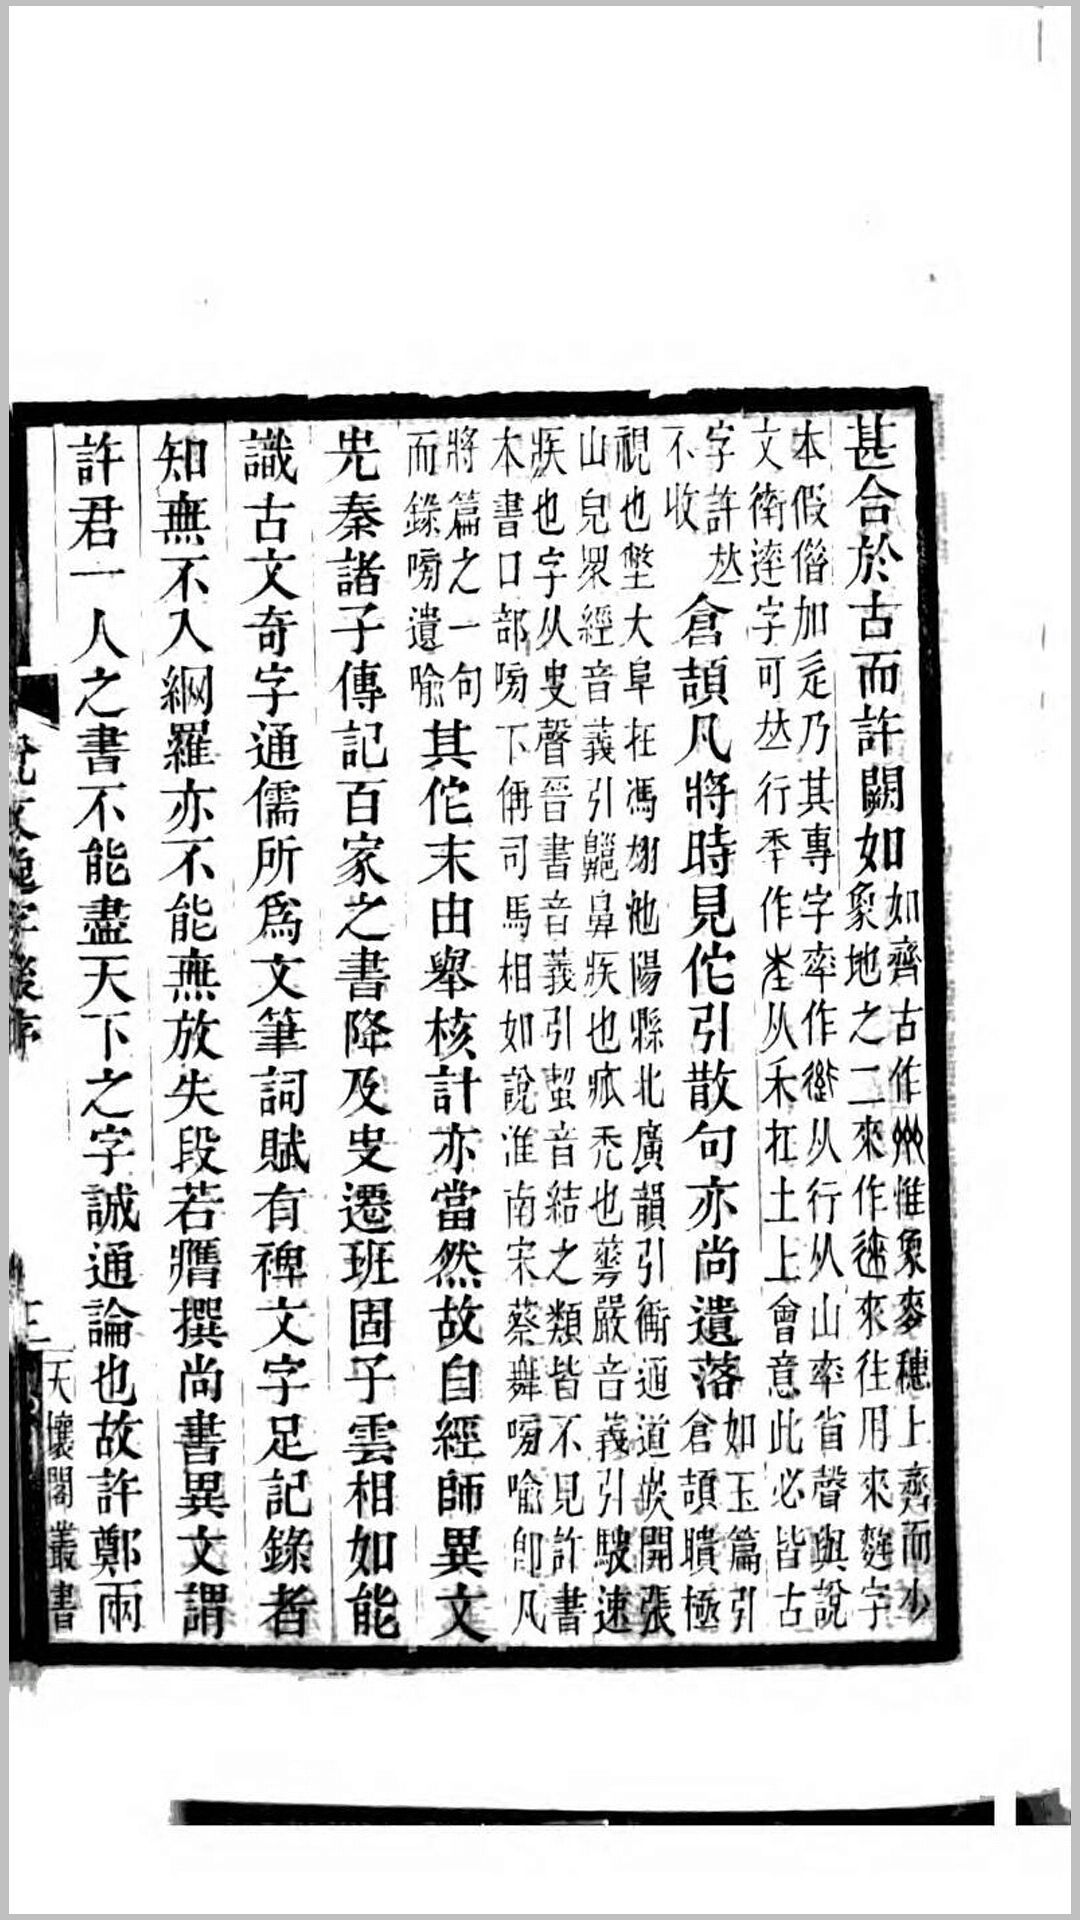 甚合於古而許闕如如齊古作𠫼惟象麥穗上齊而小
象地之二來作逨來往用來麰字
本假借加辵乃其專字率作䢦从行从山率省聲與說
文衛逹字可𠀤行秊作𡴆从禾在土上會意此必皆古
字許𠀤
不收倉頡凡將時見佗引散句亦尚遺落如玉篇引
倉頡瞶極
視也壍大阜在馮翊池陽縣北廣韻引衕通道㟅開張
山皃眾經音義引齆鼻疾也㾁禿也華嚴音義引駛速
疾也字从叓聲晉書音義引蛪音結之類皆不見許書
本書口部嗙下偁司馬相如說淮南宋蔡舞嗙喻卽凡
將篇之一句
而錄嗙遺喻其佗末由舉核計亦當然故自經師異文
先秦諸子傳記百家之書降及史遷班固子雲相如能
識古文奇字通儒所爲文筆詞賦有裨文字足記錄者
知無不入綱羅亦不能無放失段若膺撰尚書異文謂
許君一人之書不能盡天下之字誠通論也故許鄭兩
說文逸字後序
三
天壤閣叢書